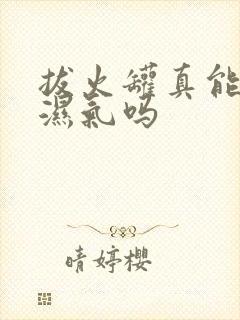 拔火罐真能
濕氣吗
晴婷櫻